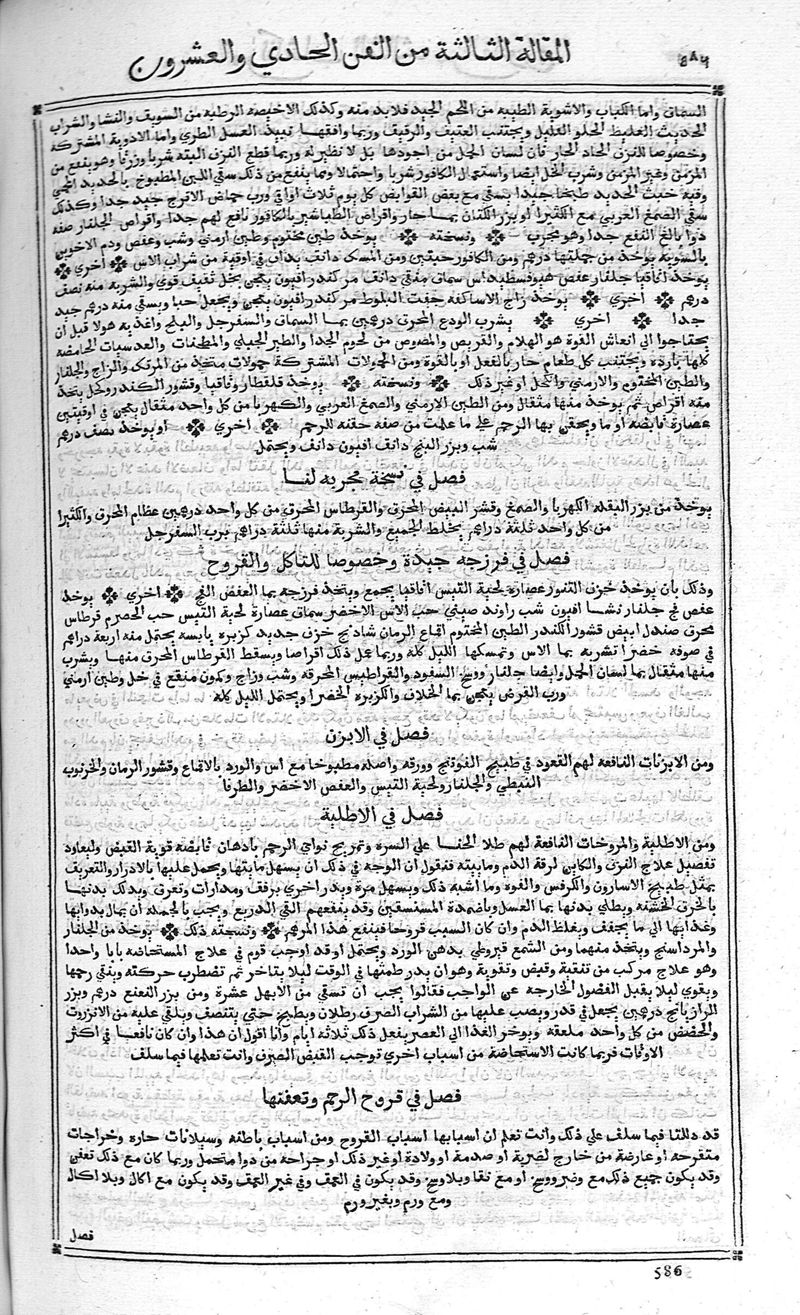 ٥٨٦
المقالة الثالثة من الفن الحادي والعشرون
السمان واما الكباب والاشوية الطيبه من اللحم الجيد فلا بد منه وكذلك الاخبصه الرطبه من السويف والنشا والشراب
الحديث الغليظ الحلو القليل ويجتنب العتيف والرقيف وربما وافقها نبيذ العسل الطري واما الادوية المشتركة
وخصوصا للنزف الحاد الحار فان لسان الحمل من اجودها بل لا نظير له وربما قطع النزف البته شربا وزرقا وهو ينفع من
المزمن وغير المزمن وشرب الخل ايضا واستعمال الكافور شربا واحتمالا ومما ينفع من ذلك سقي اللبن المطبوخ بالحديد المحمي
وفيه خبث الحديد طبخا جيدا يسقي مع بعض القوابض كل يوم ثلاث اواقي ورب حماض الاترج جيد جدا وكذلك
سقي الصمغ العربي مع الكثيرا او بزر الكتان بما حار واقراص الطباشير بالكافور نافع لهم جدا واقراص الجلنار صفه
دوا بالغ النفع جدا وهو مجرب ونسخته يوخذ طين مختوم وطين ارمني وشب وعفص ودم الاخوين
بالسويه يوخذ من جملتها درهم ومن الكافور حبتين ومن المسك دانف يداف في اوقية من شراب الاس اخري
يوخذ اقاقيا جلنار عفص هيوفسطيداس سماف منقي دانف مر كندر افيون يعجن بخل ثقيف قوي والشربه منه نصف
درهم اخري يوخذ زاج الاساكفه جفت البلوط مر كندر افيون يعجن ويجعل حبا ويسقي منه درهم جيد
جدا اخري يشرب الودع المحرف درهمين بما السماف والسفرجل والبلح واغذيه هولا قبل ان
يحتاجوا الي انعاش القوة هو الهلام والقريص والمصوص من لحوم الجدا والطير الجبلي والمطجنات والعدسيات الحامضه
كلها بارده ويجتنب كل طعام حار بالفعل او بالقوة ومن الحمولات المشتركة حمولات متخذ من المرتك والزاج والجلنار
والطين المختوم والارمني والكحل او غير ذلك ونسخته يوخذ قلقطار واقاقيا وقشور الكندر وكحل يتخذ
منه اقراص ثم يوخذ منها مثقال ومن الطين الارمني والصمغ العربي والكهربا من كل واحد مثقال يعجن في اوقيتين
عصارة قابضه او ما ويحقن بها الرحم علي ما علمت من صفه حقنه للرحم اخري او يوخذ نصف درهم
شب وبزر البنج دانف افيون دانف ويحتمل
فصل في نسخة مجربه لنا
يوخذ من بزر البقله الكهربا والصمغ وقشر البيض المحرف والقرطاس المحرف من كل واحد درهمين عظام المحرف والكثيرا
من كل واحد ثلثة دراهم يخلط الجميع والشربة منها ثلثة دراهم برب السفرجل
فصل في فرزجه جيدة وخصوصا للتاكل والقروح
وذلك بان يوخذ خزف التنور عصاره لحية التيس اقاقيا يجمع ويتخذ فرزجه بما العفص الفج اخري يوخذ
عفص فج جلنار نشا افيون شب راوند صيني حب الاس الاخضر سماف عصارة لحية التيس حب الحصرم قرطاس
محرف صندل ابيض قشور الكندر الطين المختوم اقماع الرمان شادنج خزف جديد كزبره يابسه يحتمل منه اربعة دراهم
في صوفه خضرا تشربه بما الاس وتمسكها الليل كله وربما عمل ذلك اقراصا ويسقط القرطاس المحرف منها ويشرب
منها مثقال بما لسان الحمل وايضا جلنار ووسخ السفود والقراطيس المحرفه وشب وزاج وكمون منقع في خل وطين ارمني
ورب القرض يعجن بما الخلاف والكزبره الخضرا ويحتمل الليل كله
فصل في الابزن
ومن الابزنات النافعه لهم القعود في طبيخ الفوتنج وورقه واصله مطبوخا مع اس والورد بالاقماع وقشور الرمان والخرنوب
النبطي والجلنار ولحية التيس والعفص الاخضر والطرفا
فصل في الاطلية
ومن الاطلية والمروخات النافعة لهم طلا الحنفا علي السره وتمريخ نواحي الرحم بادهان قابضه قوية القبض وليعاود
تفصيل علاج النزف والكاين لرقة الدم ومايبته فنقول ان الوجه في ذلك ان يسهل مايتها ويحمل عليها بالادرار والتعريف
بمثل طبيخ الاسارون والكرفس والفوه وما اشبه ذلك ويسهل مرة ويدر اخري برفف ومدارات وتعرف ويدلك بدنها
بالخرف الخشنه ويطلي بدنها بما العسل وباضمدة المستسقين وقد ينفعهم القي الذريع ويجب بالجمله ان يمال بدوايها
وغذايها الي ما يجفف ويغلظ الدم وان كان السبب قروحا فينفع هذا المرهم ونسخته ذلك يوخذ من الجلنار
والمرداسنج ويتخذ منهما ومن الشمع قيروطي بدهن الورد ويحتمل او قد اوجب قوم في علاج المستحاضه بابا واحدا
وهو علاج مركب من تنقية وقبض وتقوية وهو ان يدر طمثها في الوقت ليلا يتاخر ثم تضطرب حركته وينقي رحمها
ويقوي ليلا يقبل الفضول الخارجه عن الواجب فقالوا يجب ان تسقي من الابهل عشرة ومن بزر النعنع درهم وبزر
الرازيانج درهمين يجعل في قدر ويصب عليها من الشراب الصرف رطلان ويطبخ حتي ينتصف ويلقي عليه من الانزروت
والحضض من كل واحد ملعقه ويوخر الغذا الي العصر يفعل ذلك ثلاثه ايام وانا اقول ان هذا وان كان نافعا في اكثر
الاوقات فربما كانت الاستحاضة من اسباب اخري توجب القبض الصرف وانت تعلمها فيما سلف
فصل في قروح الرحم وتعفنها
قد دللنا فيما سلف علي ذلك وانت تعلم ان اسبابها اسباب القروح ومن اسباب باطنه وسيلانات حاره وخراجات
متقرحه او عارضة من خارج لضربة او صدمة او ولادة او غير ذلك او جراحه من دوا متحمل وربما كان مع ذلك تعفن
وقد يكون جميع ذلك مع وضر ووسخ او مع نقا وبلا وسخ وقد يكون في العمف وفي غير العمف وقد يكون مع اكال وبلا اكال
ومع ورم وبغير ورم
فصل
586